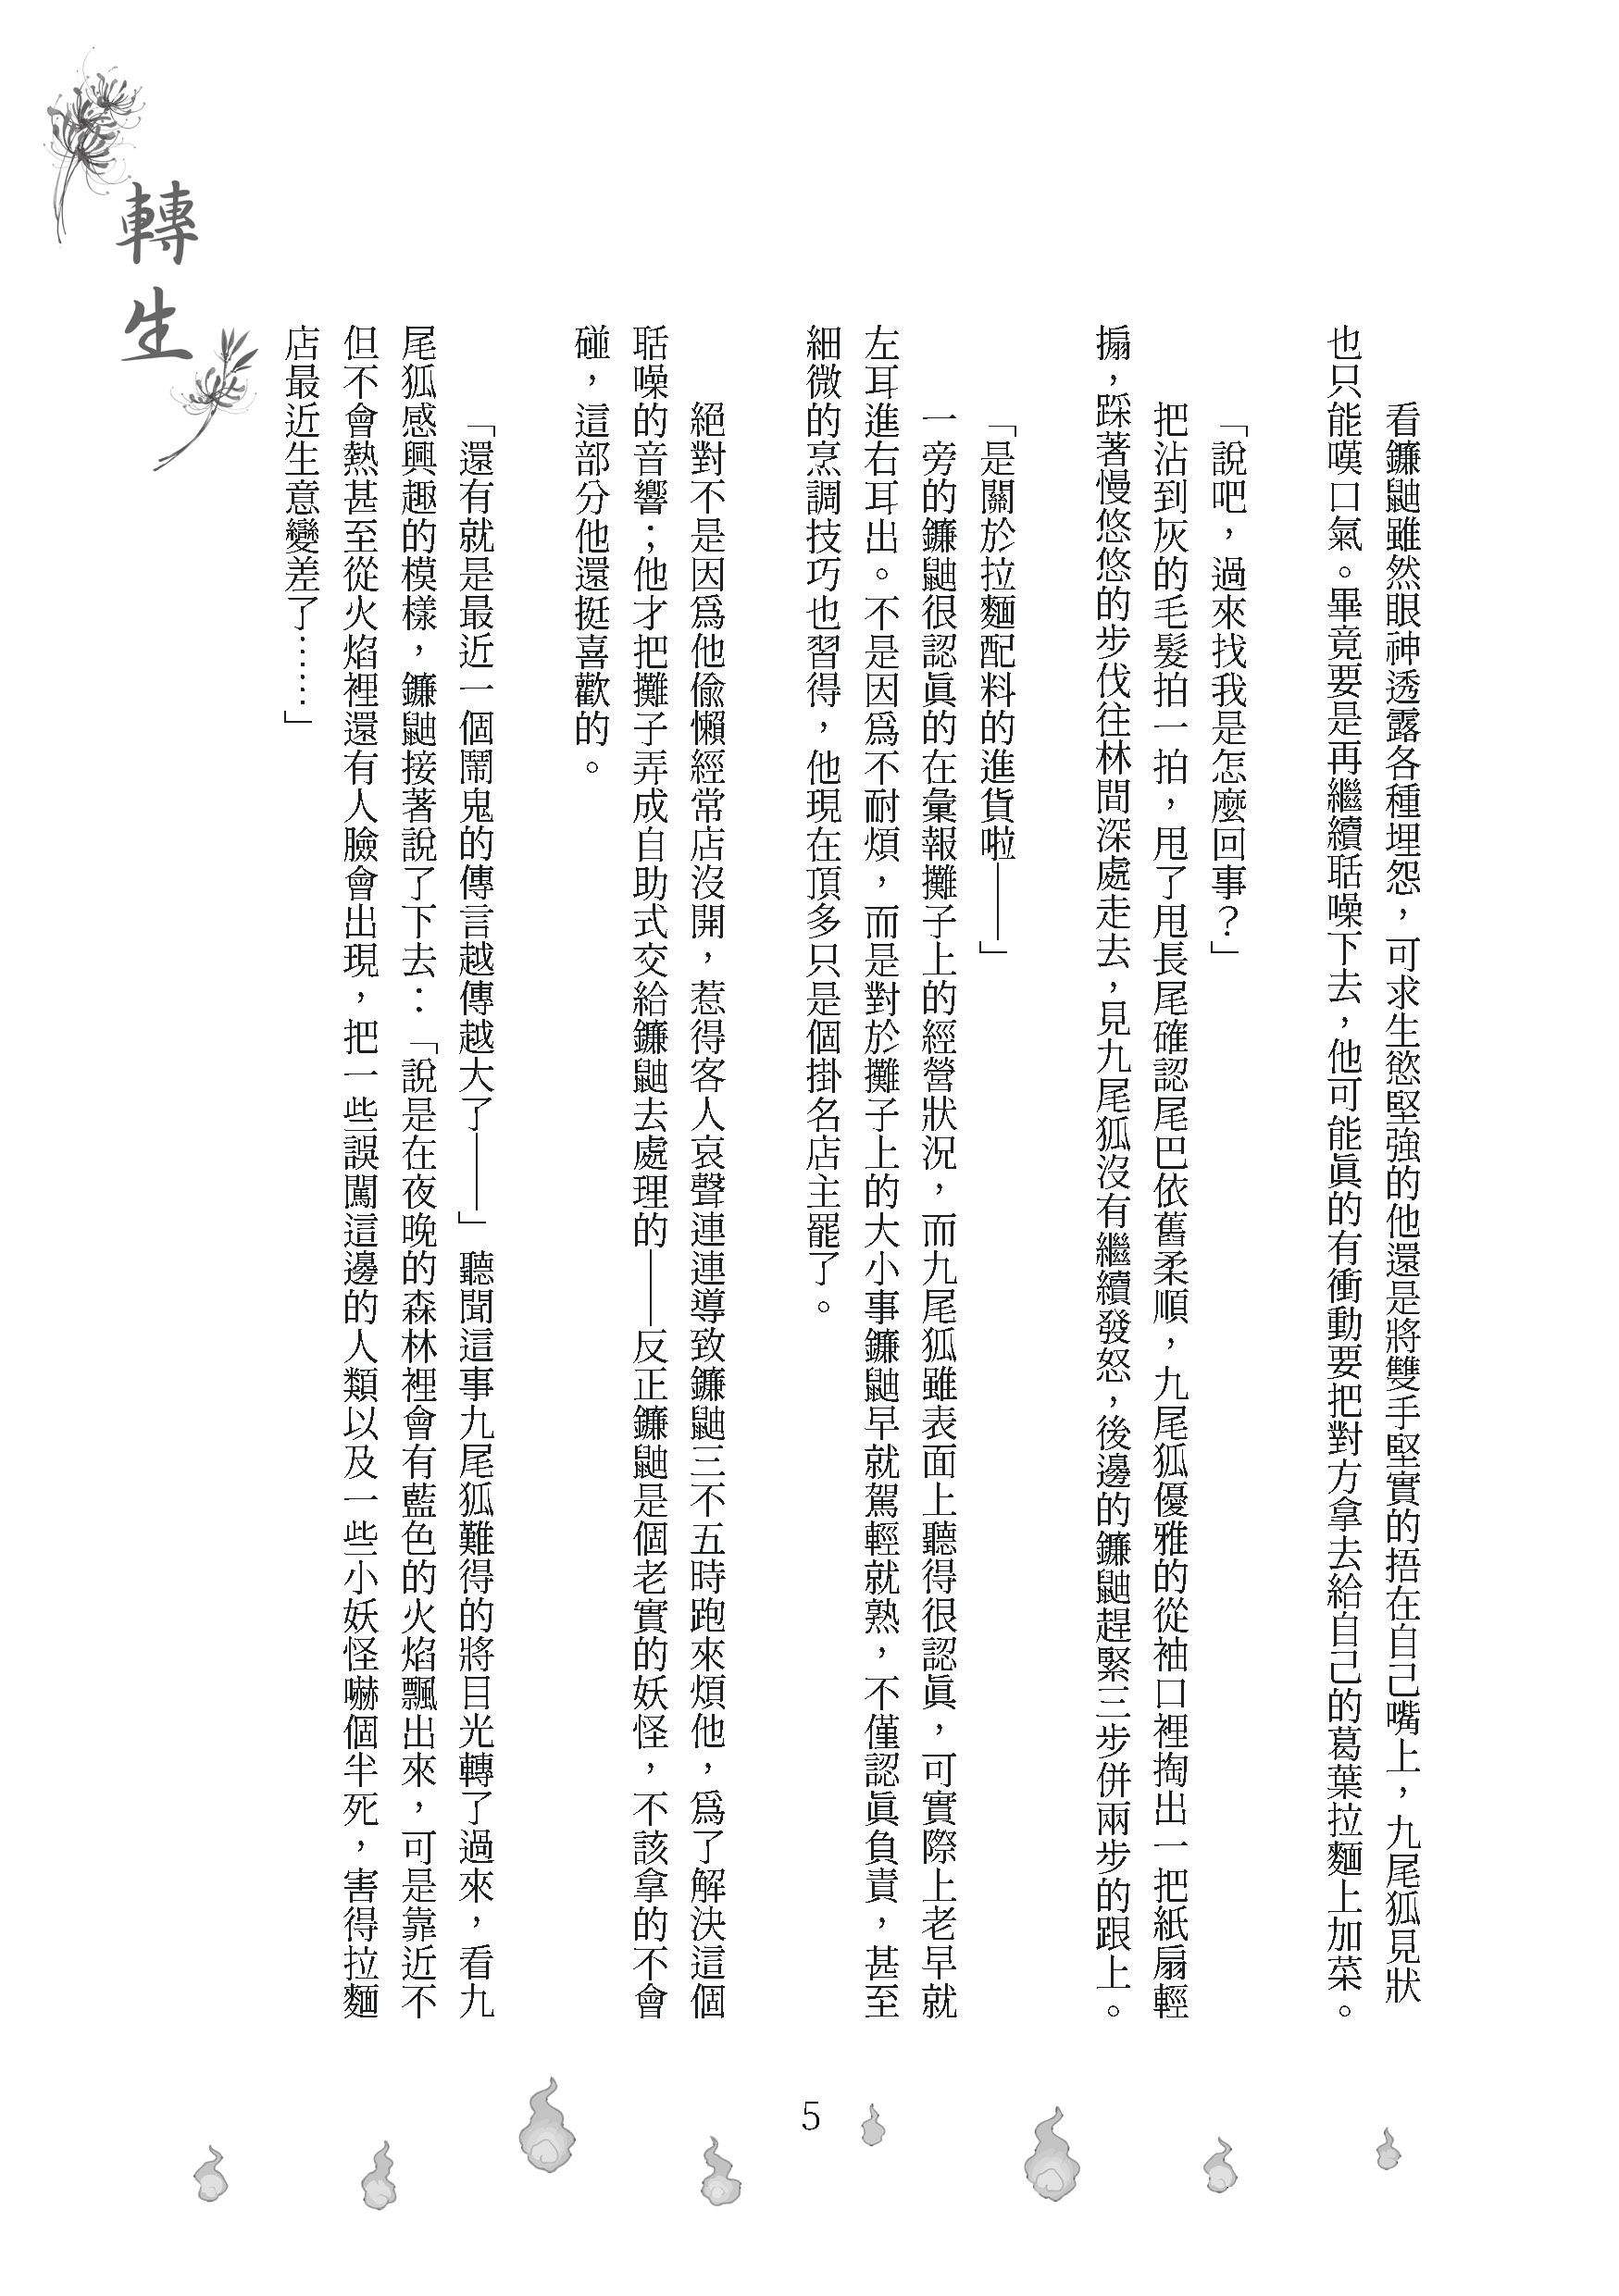 看鐮鼬雖然眼神透露各種埋怨，可求生慾堅強的他還是將雙手堅實的捂在自己嘴上，九尾狐見狀
也只能嘆口氣。畢竟要是再繼續聒噪下去，他可能真的有衝動要把對方拿去給自己的葛葉拉麵上加菜。
「說吧，過來找我是怎麼回事？」
把沾到灰的毛髮拍一拍，甩了甩長尾確認尾巴依舊柔順，九尾狐優雅的從袖口裡掏出一把紙扇輕
搧，踩著慢悠悠的步伐往林間深處走去，見九尾狐沒有繼續發怒，後邊的鐮鼬趕緊三步併兩步的跟上。
「是關於拉麵配料的進貨啦——」
一旁的鐮鼬很認真的在彙報攤子上的經營狀況，而九尾狐雖表面上聽得很認真，可實際上老早就
左耳進右耳出。不是因為不耐煩，而是對於攤子上的大小事鐮鼬早就駕輕就熟，不僅認真負責，甚至
細微的烹調技巧也習得，他現在頂多只是個掛名店主罷了。
絕對不是因為他偷懶經常店沒開，惹得客人哀聲連連導致鐮鼬三不五時跑來煩他，為了解決這個
聒噪的音響；他才把攤子弄成自助式交給鐮鼬去處理的——反正鐮鼬是個老實的妖怪，不該拿的不會
碰，這部分他還挺喜歡的。
「還有就是最近一個鬧鬼的傳言越傳越大了——」聽聞這事九尾狐難得的將目光轉了過來，看九
尾狐感興趣的模樣，鐮鼬接著說了下去：「說是在夜晚的森林裡會有藍色的火焰飄出來，可是靠近不
但不會熱甚至從火焰裡還有人臉會出現，把一些誤闖這邊的人類以及一些小妖怪嚇個半死，害得拉麵
店最近生意變差了……」
轉生
5